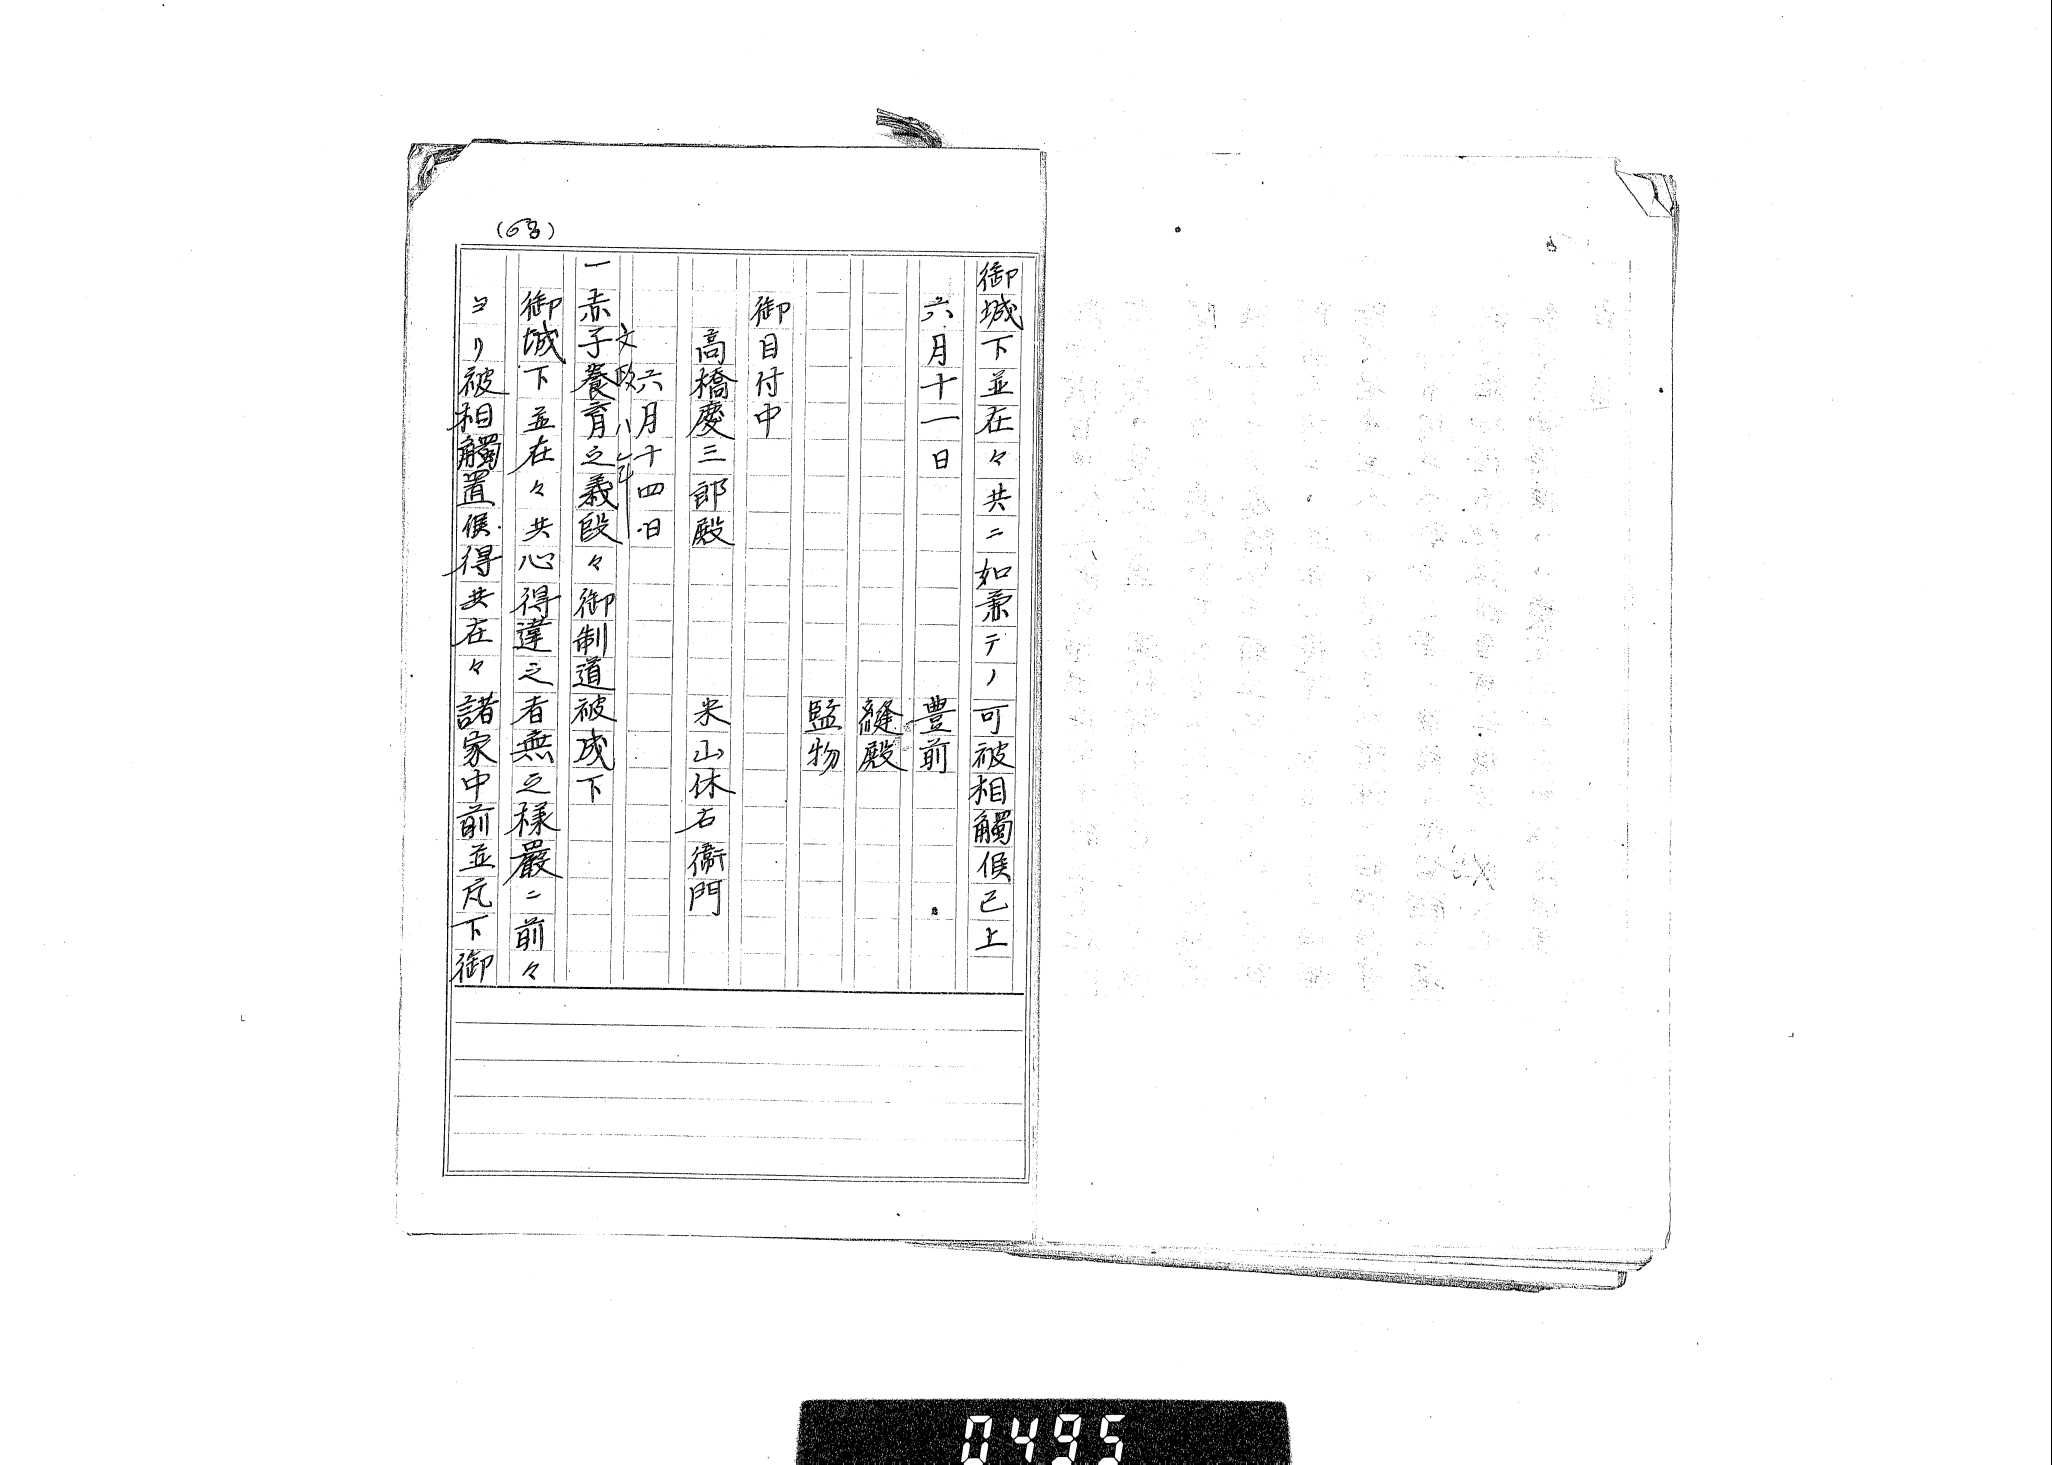 御城下並在々共ニ如兼テノ可被相觸候已上
六月十一日　豊前
縫殿
監物
御目付中
高橋慶三郎殿　米山休右衞門
六月十四日
文政八年
一赤子養育之義段々御制道被成下
御城下並在々共心得違之者無之様嚴ニ前々
ヨリ被相觸置候得共在々諸家中前並凡下御
0495